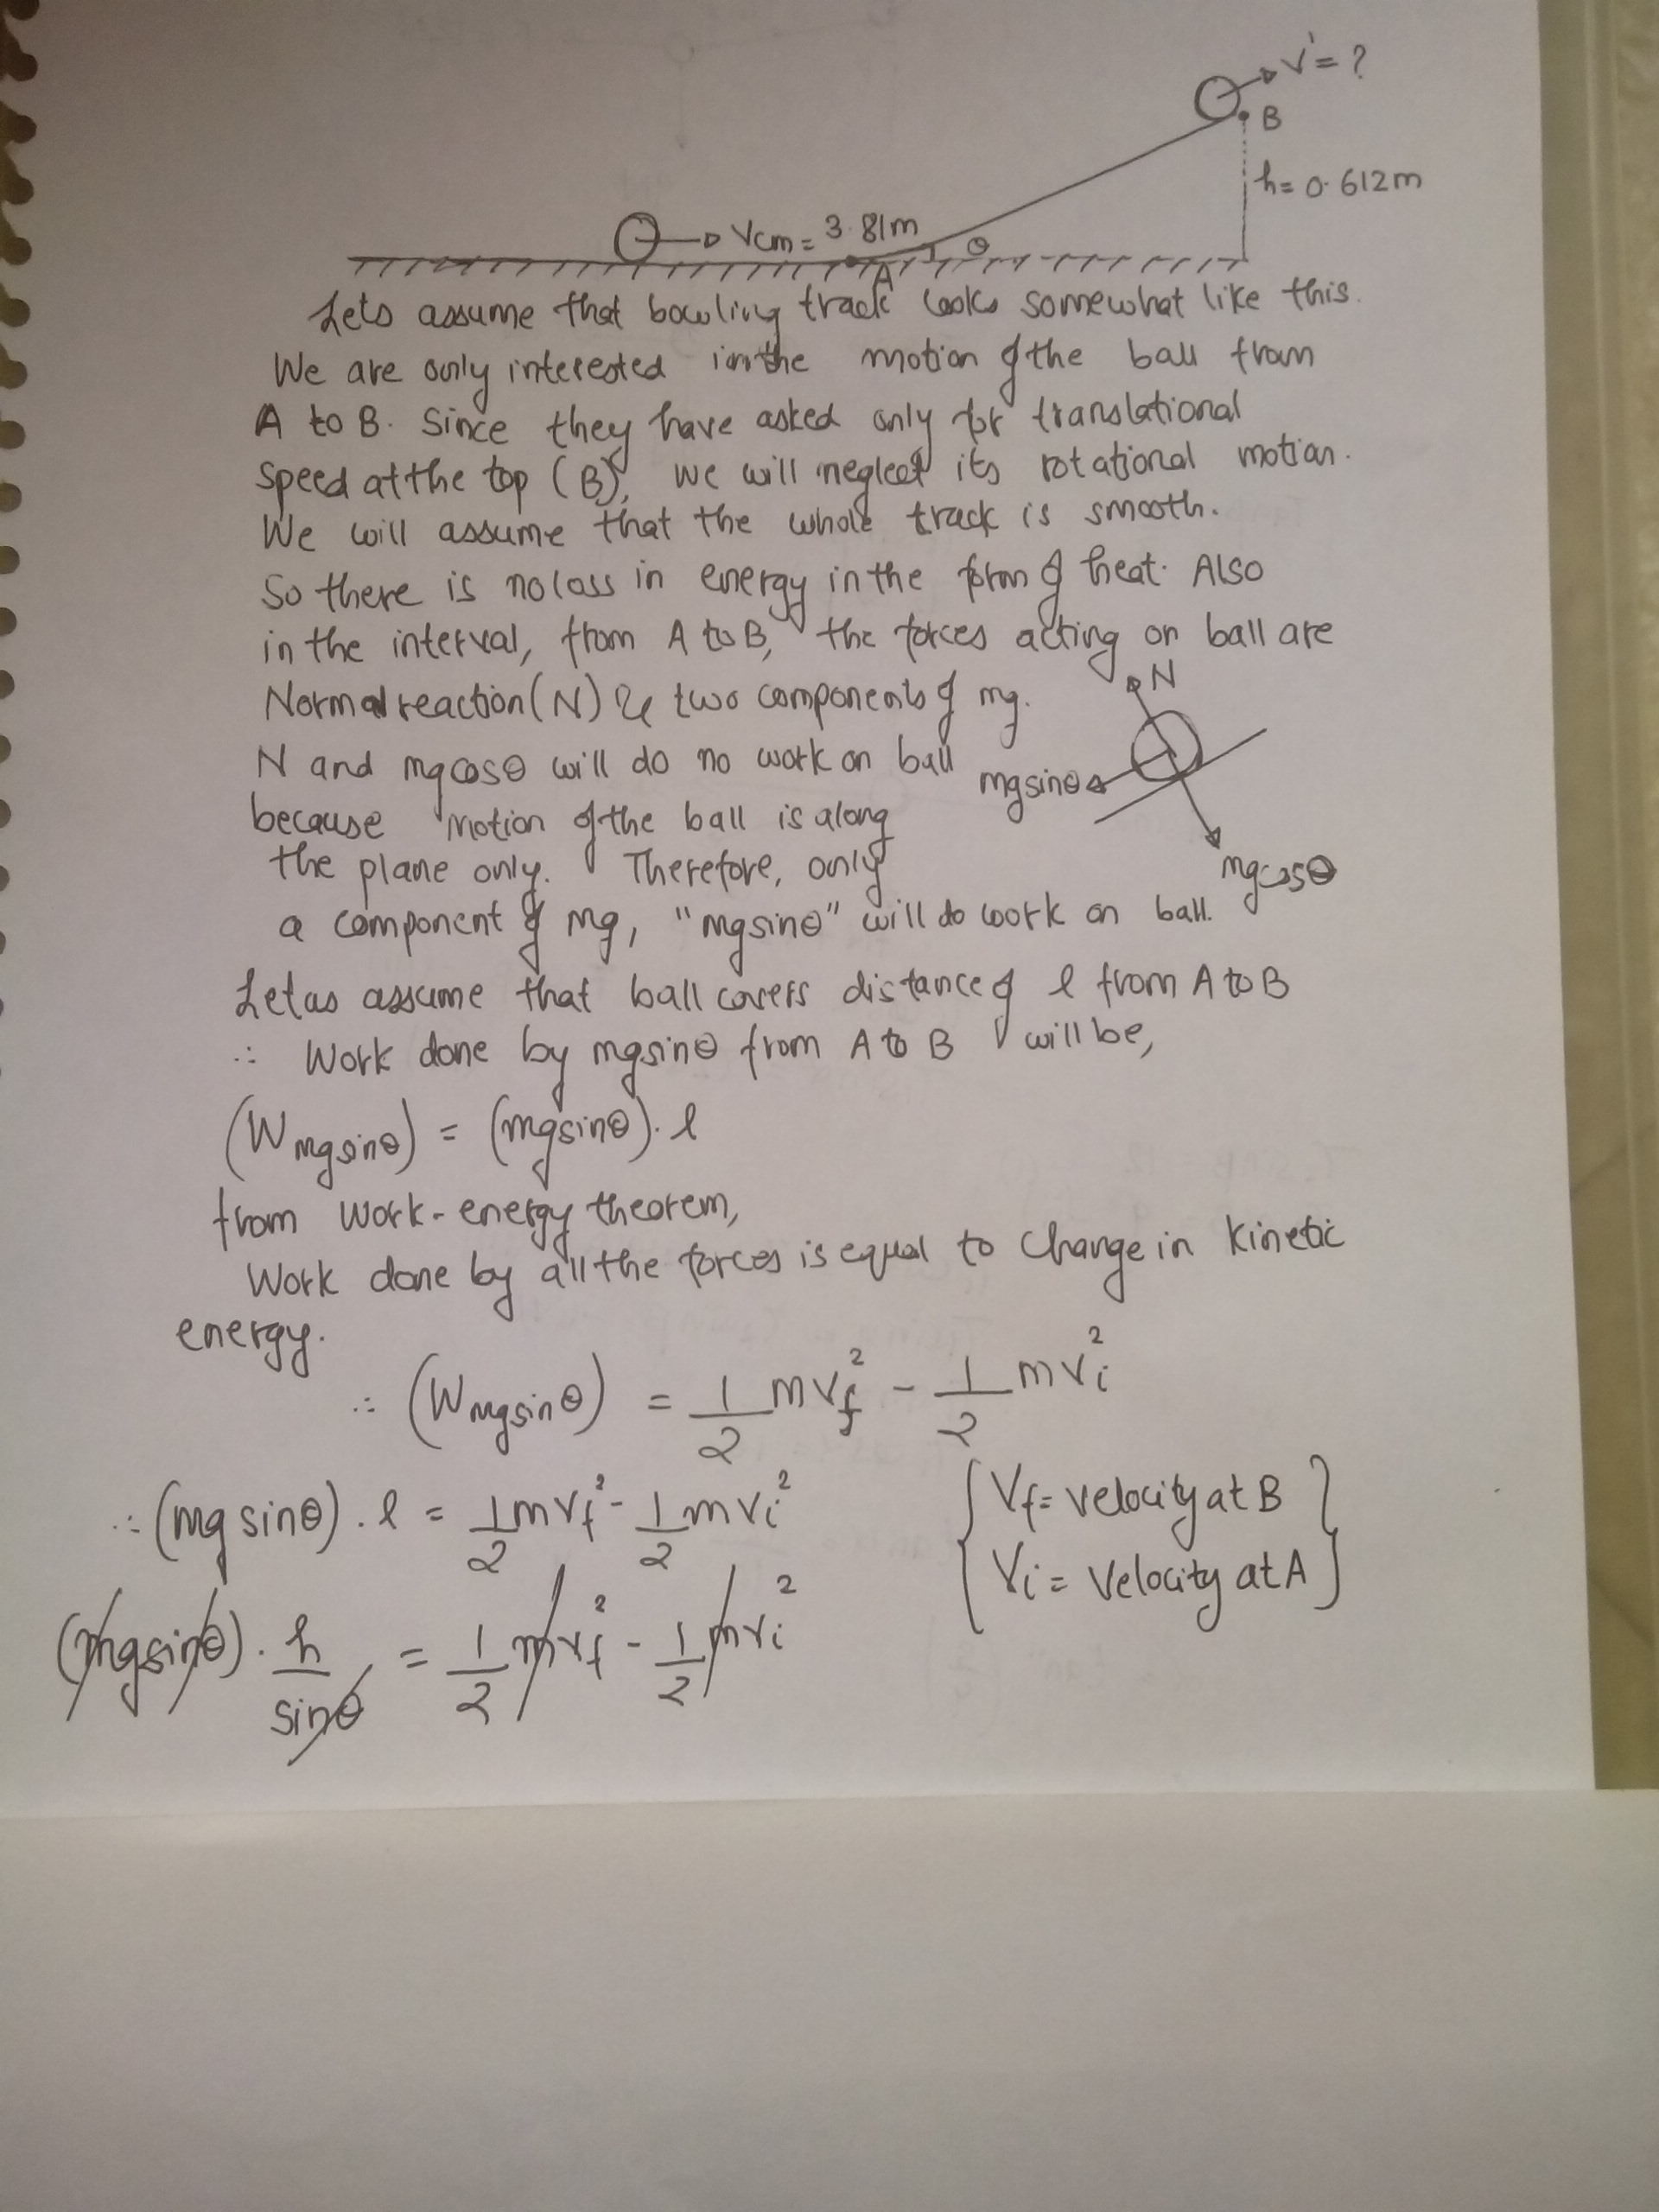 V' = ?
B
h = 0.612m
Vcm = 3.81m
θ
A
Lets assume that bowling track looks somewhat like this.
We are only interested in the motion of the ball from
A to B. Since they have asked only for translational
speed at the top (B), we will neglect its rotational motion.
We will assume that the whole track is smooth.
So there is no loss in energy in the form of heat. Also
in the interval, from A to B, the forces acting on ball are
Normal reaction (N) & two components of mg.
N
N and mgcosθ will do no work on ball
mgsinθ
because motion of the ball is along
the plane only. Therefore, only
mgcosθ
a component of mg, "mgsinθ" will do work on ball.
Let us assume that ball covers distance of l from A to B
∴ Work done by mgsinθ from A to B will be,
(W mgsinθ) = (mgsinθ). l
from work-energy theorem,
Work done by all the forces is equal to change in kinetic
energy.
∴ (W mgsinθ) = 1/2 mvf² - 1/2 mvi²
∴ (mg sinθ) . l = 1/2 mvf² - 1/2 mvi²
{ Vf = velocity at B
Vi = Velocity at A }
(mgsinθ) . h/sinθ = 1/2 mvf² - 1/2 mvi²